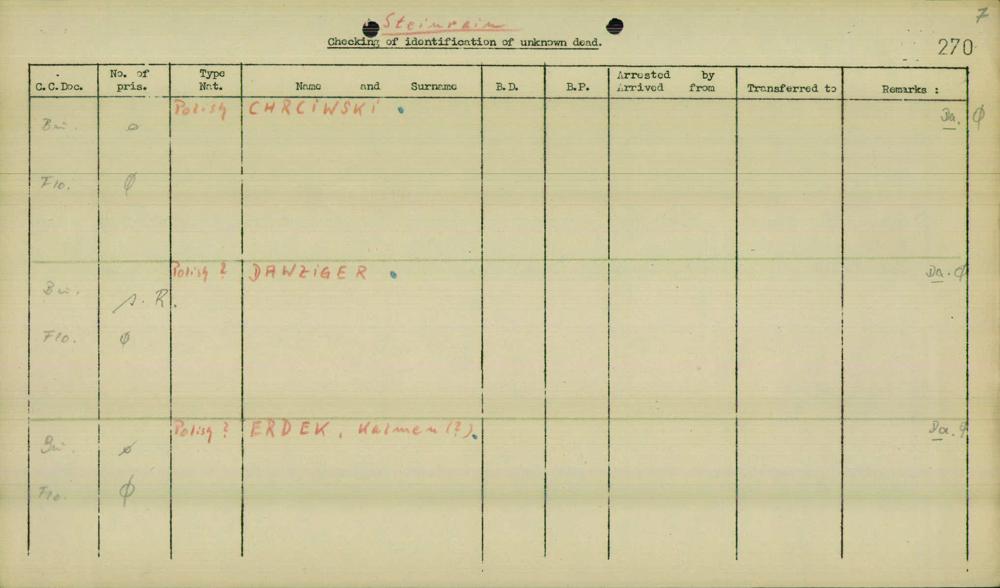 7
Steinrain
Checking of identification of unknown dead.
270
C.C.Doc. No. of pris. Type Nat. Name and Surname B.D. B.P. Arrested by Arrived from Transferred to Remarks :
Polish CHRCIWSKI .
Bu. ø Da. ø
Flo. ø
Polish ? DANZIGER . Da. ø
Bu. s. R.
Flo. ø
Polish ? ERDEK, Kalmen (?). Da. ø
Bu. ø
Flo. ø